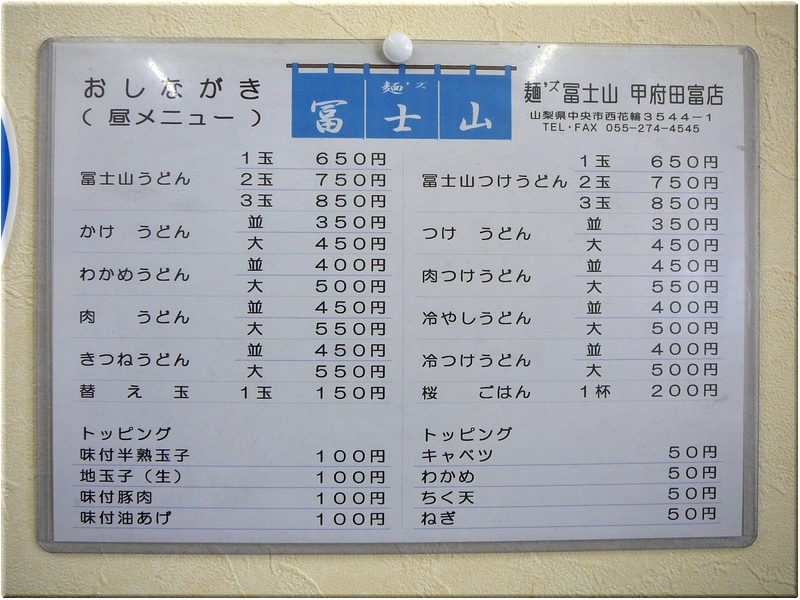 おしながき
（昼メニュー）
麺'ズ
冨士山
麺'ズ冨士山 甲府田富店
山梨県中央市西花輪３５４４－１
TEL・FAX 055-274-4545
冨士山うどん １玉 ６５０円
２玉 ７５０円
３玉 ８５０円
かけ うどん 並 ３５０円
大 ４５０円
わかめうどん 並 ４００円
大 ５００円
肉 うどん 並 ４５０円
大 ５５０円
きつねうどん 並 ４５０円
大 ５５０円
替え玉 １玉 １５０円
トッピング
味付半熟玉子 １００円
地玉子（生） １００円
味付豚肉 １００円
味付油あげ １００円
冨士山つけうどん １玉 ６５０円
２玉 ７５０円
３玉 ８５０円
つけ うどん 並 ３５０円
大 ４５０円
肉つけうどん 並 ４５０円
大 ５５０円
冷やしうどん 並 ４００円
大 ５００円
冷つけうどん 並 ４００円
大 ５００円
桜 ごはん １杯 ２００円
トッピング
キャベツ ５０円
わかめ ５０円
ちく天 ５０円
ねぎ ５０円